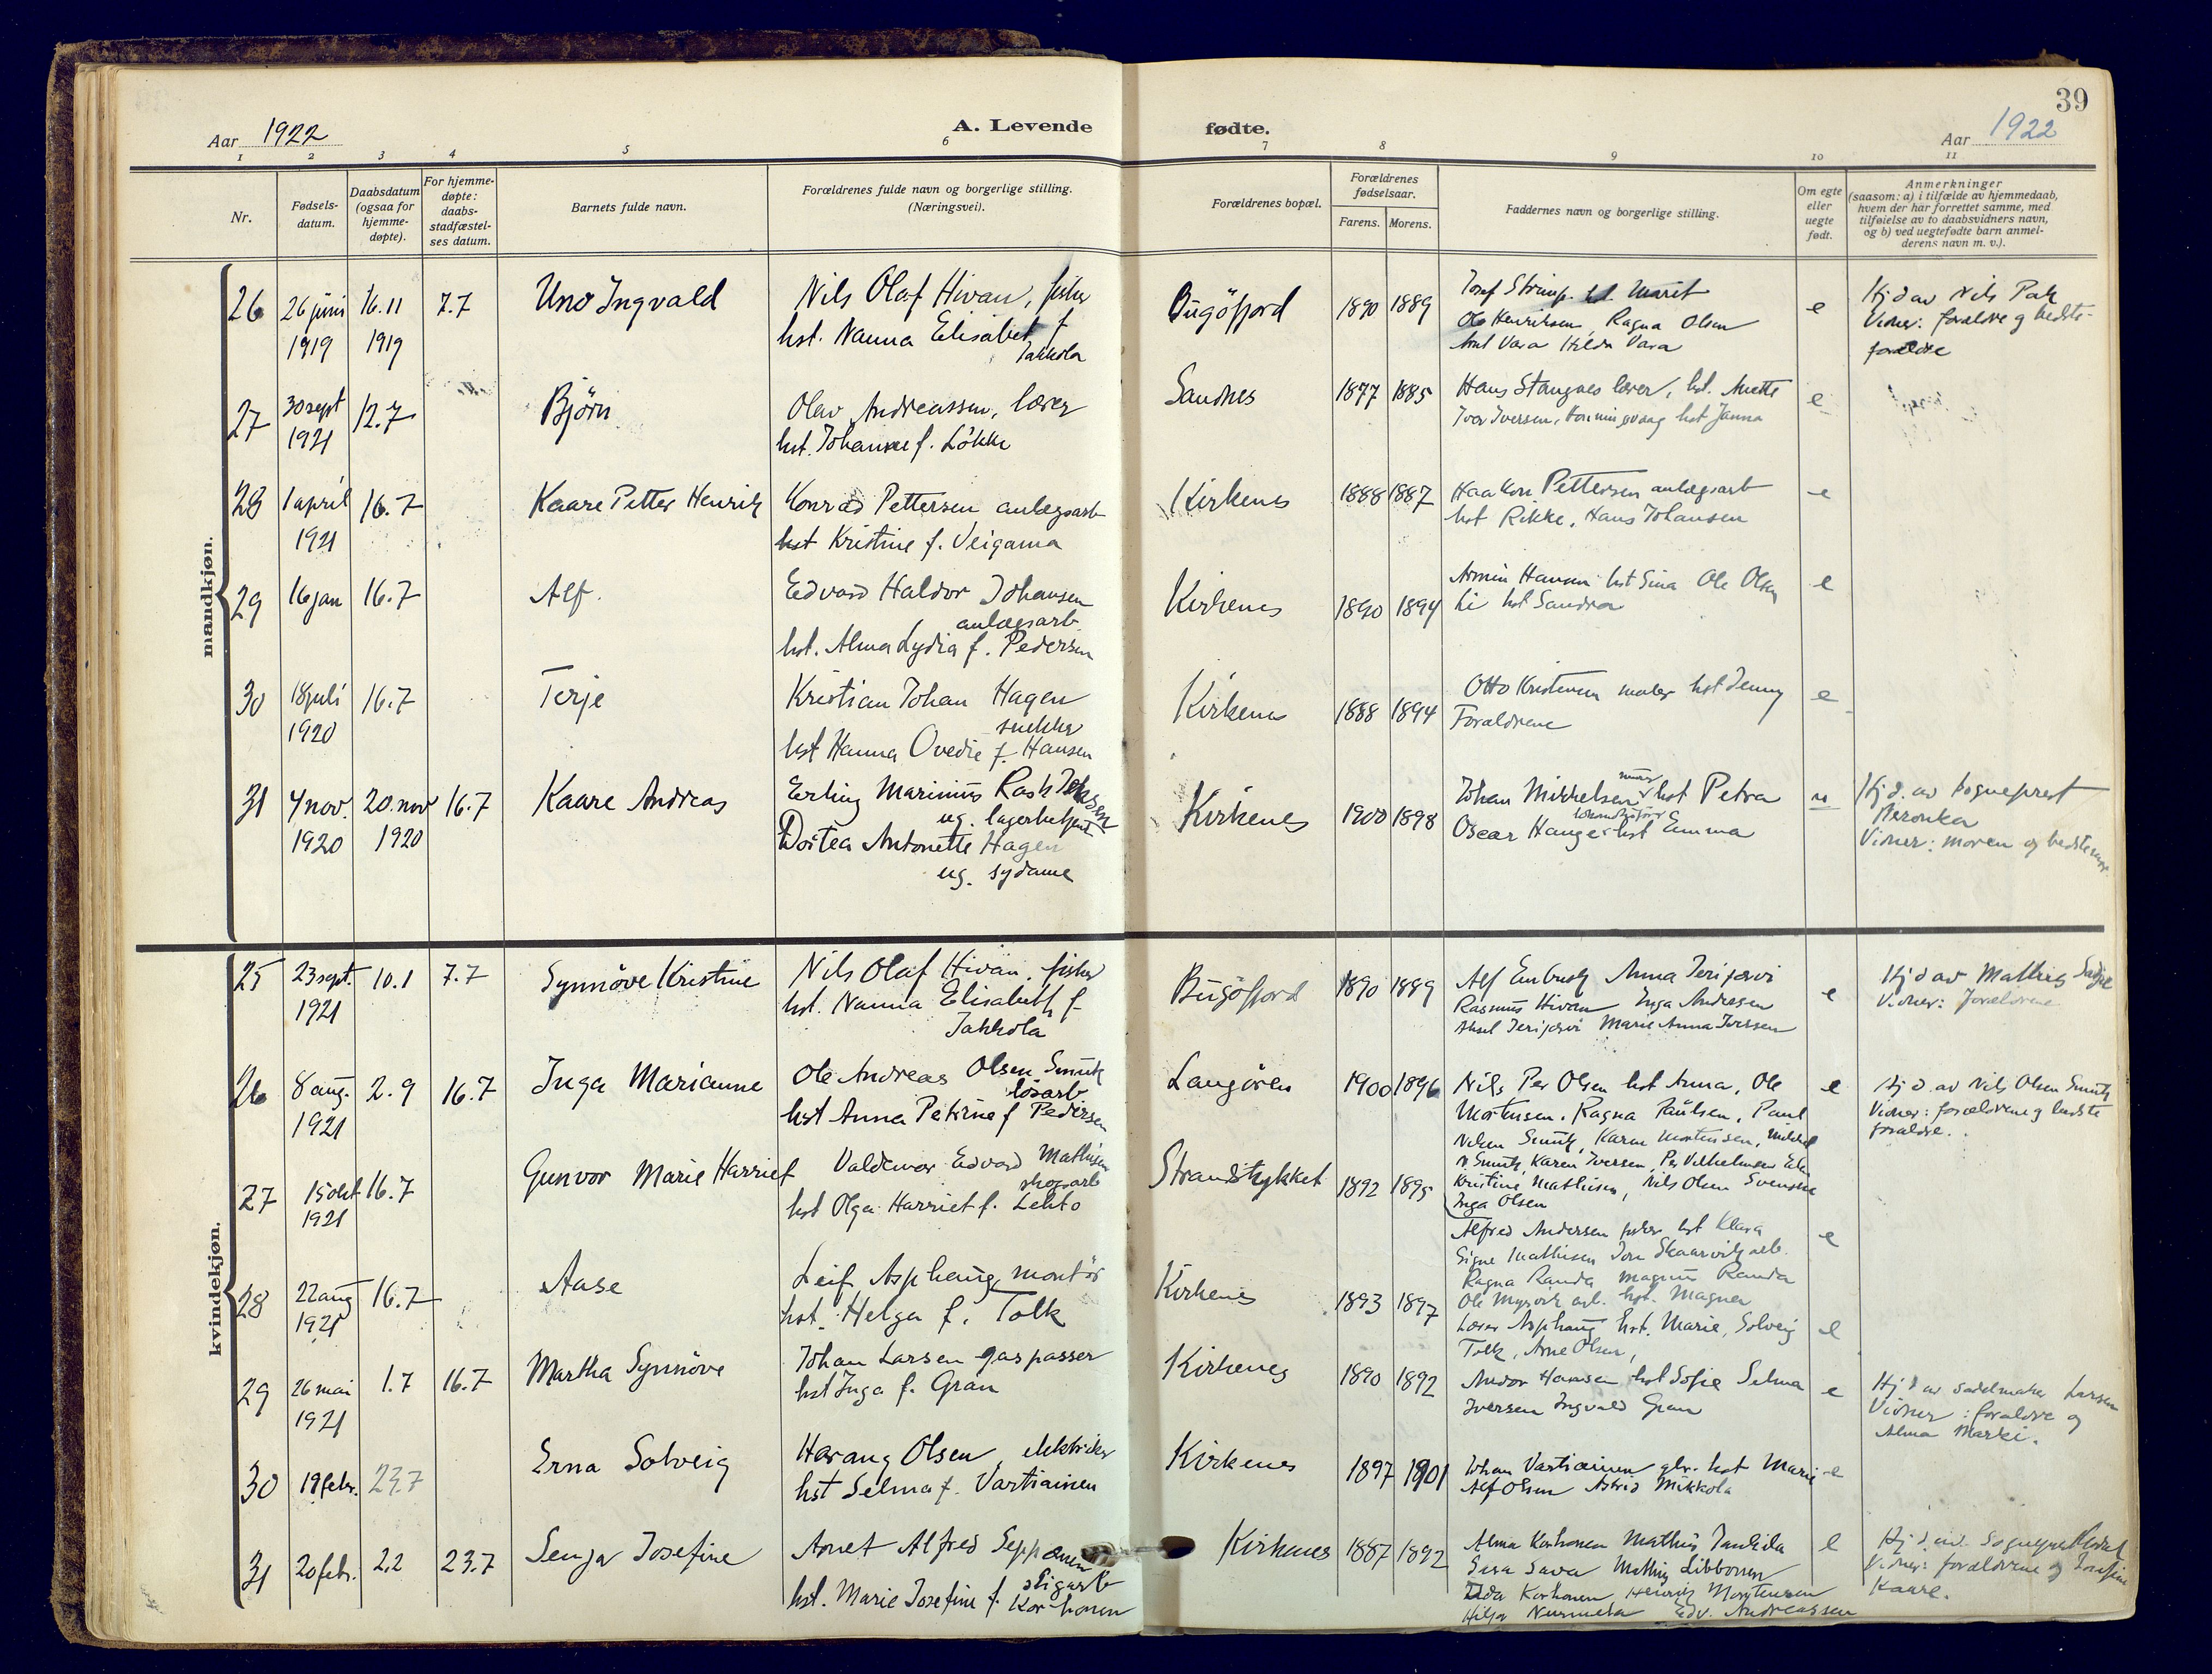 39
Aar 1922
A. Levende fødte.
Aar 1922
1 2 3 4 5 6 7 8 9 10 11
Nr.
Fødsels-
datum.
Daabsdatum
(ogsaa for
hjemme-
døpte).
For hjemme-
døpte:
daabs-
stadfæstel-
ses datum.
Barnets fulde navn.
Forældrenes fulde navn og borgerlige stilling.
(Næringsvei).
Forældrenes bopæl.
Forældrenes
fødselsaar.
Farens. Morens.
Faddernes navn og borgerlige stilling.
Om egte
eller
uegte
født.
Anmerkninger
(saasom: a) i tilfælde av hjemmedaab,
hvem der har forrettet samme, med
tilføielse av to daabsvidners navn,
og b) ved uegtefødte barn anmel-
derens navn m. v.).
mandkjøn.
26
26 juni
1919
16.11
1919
7.7
Uno Ingvald
Nils Olaf Hivan, fisker
hst. Nanna Elisabet f
Jakkola
Bugöfjord
1890 1889
Josef hst. Marit
Ole Henriksen, Ragna Olsen
Vara Hilda Vara
e
Hj d av Nils Pak
Vidner: forældre og bedste-
forældre
27
30 sept
1921
12.7
Björn
Olav Andreassen, lærer
hst. Johanne f. Lökke
Sandnes
1877 1885
Hans Stangnes lærer, hst. Anette
Ivar Iversen, Honningsvaag hst Janna
e
28
1 april
1921
16.7
Kaare Petter Henrik
Konrad Pettersen anlægsarb
hst Kristine f. Veigama
Kirkenes
1888 1887
Haakon Pettersen anlægsarb
hst Rikke, Hans Johansen
e
29
16 jan
16.7
Alf.
Edvard Haldor Johansen
anlægsarb.
hst. Alma Lydia f. Pedersen
Kirkenes
1890 1894
Armin Hansen hst Sina Ole Olsen
Li hst Sandra
e
30
18 juli
1920
16.7
Terje
Kristian Johan Hagen
snekker
hst Hanna Ovedie f. Hansen
Kirkenes
1888 1894
Otto Kristensen maler hst Jenny
Forældrene
e
31
7 nov.
1920
20. nov
1920
16.7
Kaare Andreas
Erling Marinius Rask Jakobsen
ug. lagerbetjent
Dortea Antonette Hagen
ug. sydame
Kirkenes
1900 1898
Johan Mikkelsen murer hst Petra
Oscar Hauge hst Emma
u
Hj d. av sogneprest
Beronka
Vidner: moren og bedstemor
kvindekjøn.
25
23 sept.
1921
10.1
7.7
Synnöve Kristine
Nils Olaf Hivan, fisker
hst. Nanna Elisabeth f
Jakkola
Bugöfjord
1890 1889
Alf Embusk Anna Jerijärvi
Rasmus Hivan Inga Andresen
Aksel Jerijärvi Marie Anna Iversen
e
Hj d av Mathis
Vidner: forældrene
26
8 aug.
1921
2.9
16.7
Inga Marianne
Ole Andreas Olsen Smuk
lösarb
hst Anna Petrine f Pedersen
Langören
1900 1896
Nils Per Olsen hst Anna, Ole
Mortensen, Ragna Paulsen, Paul
Nilsen Smuk, Karen Mortensen, Mikkel
N Smuk, Karen Iversen, Per Vilhelmsen
Kristine Mathisen, Nils Olsen Svenske
Inga Olsen
e
Hj d. av Nils Olsen Smuk
Vidner: forældrene og bedste
forældre.
27
15 okt
1921
16.7
Gunvor Marie Harriet
Valdemar Edvard Mathisen
skogsarb
hst Olga Harriet f. Lehto
Strandstykket
1892 1895
Alfred Andersen fisker hst Klara
Signe Mathisen Jon Skaarvik arb.
Ragna Randa Magnus Randa
Ole Myrvik arb. hst. Magna
e
28
22 aug
1921
16.7
Aase
Leif Asphaug, montör
hst. Helga f. Tolk
Kirkenes
1893 1897
Lærer Asphaug hst. Marie, Solveig
Tolk, Arne Olsen,
e
29
26 mai
1921
1.7
16.7
Martha Synnöve
Johan Larsen gaspasser
hst Inga f. Gran
Kirkenes
1890 1892
Andor Hansen hst Sofie Selma
Iversen Ingvald Gran
e
Hj d av sadelmaker Larsen
Vidner: forældre og
Alma Marki.
30
18 febr.
23.7
Erna Solveig
Harang Olsen, elektriker
hst Selma f. Vartiainen
Kirkenes
1897 1901
Johan Vartiainen gbr. hst Marie
Alf Olsen Astrid Mikkola
e
31
20 febr.
2.2
23.7
Senja Josefine
Arnet Alfred Seppänen
hst. Marie Josefine f. Korhonen
Kirkenes
1887 1892
Alma Korhonen Mathis
Mathis
Ida Korhonen Henrik Mortensen
Hilja Nurmela Edv. Andreassen
e
Hj d. av. Sogneprest
Vidner: forældrene og Josefine
Kaare.